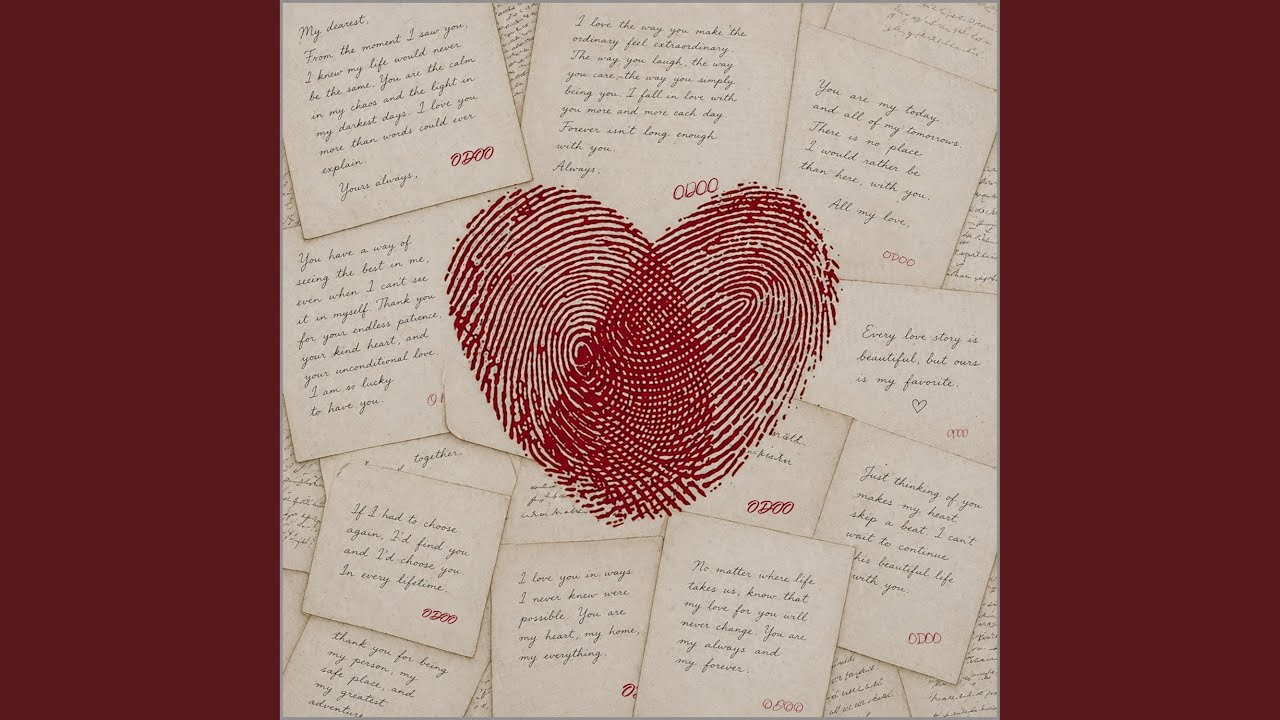 My dearest,
From the moment I saw you,
I knew my life would never
be the same. You are the calm
in my chaos and the light in
my darkest days. I love you
more than words could ever
explain.
Yours always,
ODOO
I love the way you make the
ordinary feel extraordinary.
The way you laugh, the way
you care, the way you simply
being you. I fall in love with
you more and more each day.
Forever isn't long enough
with you.
Always,
ODOO
You are my today
and all of my tomorrows.
There is no place
I would rather be
than here, with you.
All my love,
ODOO
You have a way of
seeing the best in me,
even when I can't see
it in myself. Thank you
for your endless patience,
your kind heart, and
your unconditional love.
I am so lucky
to have you.
Every love story is
beautiful, but ours
is my favorite.
ODOO
together.
ODOO
If I had to choose
again, I'd find you
and I'd choose you.
In every lifetime.
ODOO
Just thinking of you
makes my heart
skip a beat. I can't
wait to continue
his beautiful life
with you.
ODOO
I love you in ways
I never knew were
possible. You are
my heart, my home,
my everything.
No matter where life
takes us, know that
my love for you will
never change. You are
my always and
my forever.
ODOO
thank you for being
my person, my
safe place, and
my greatest
adventure